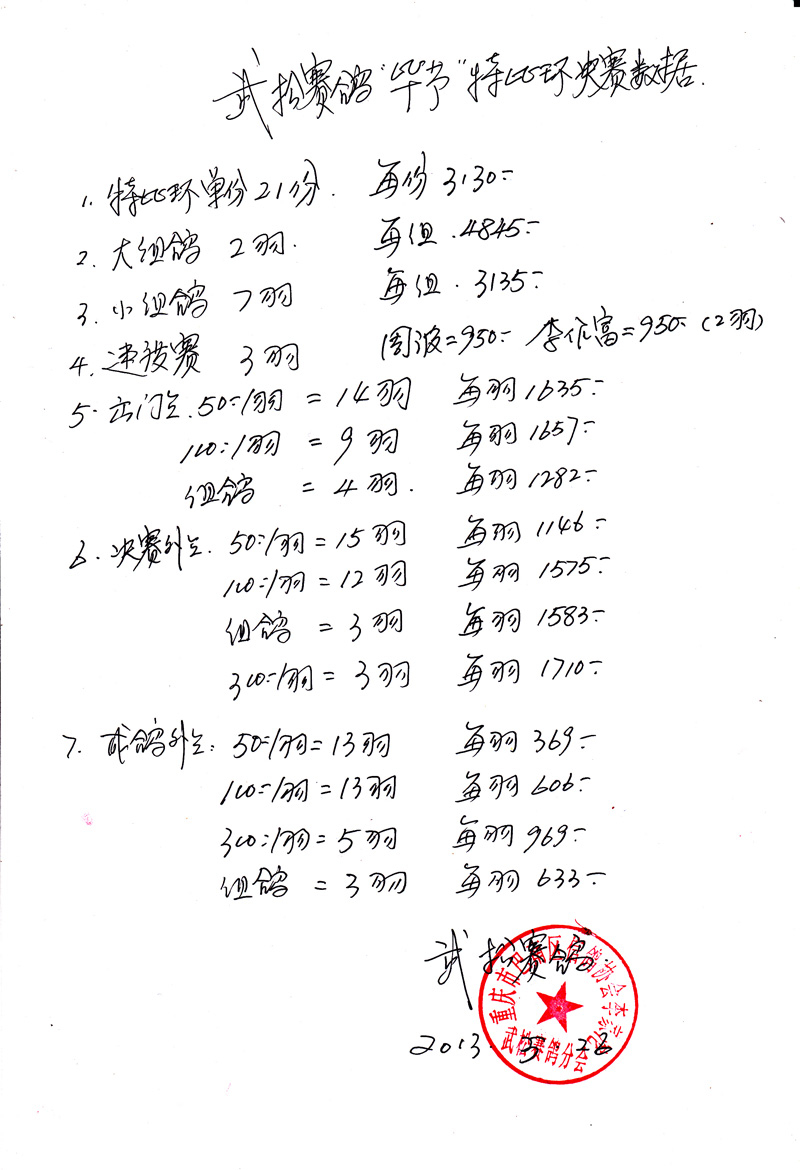 武松赛鸽“毕节”特比环决赛数据.
1. 特比环单份21份. 每份3130:-
2. 大组鸽 2羽. 每组.4845:-
3. 小组鸽 7羽 每组.3135:-
4. 赛 3羽 周波=950:- 李作富=950:-(2羽)
5. 出门.50:-/羽 = 14羽 每羽1635:-
100:-/羽 = 9羽 每羽1657:-
组鸽 = 4羽. 每羽1282:-
6. 决赛外. 50:-/羽=15羽 每羽1146:-
100:-/羽=12羽 每羽1575:-
组鸽 = 3羽 每羽1583:-
300:-/羽=3羽 每羽1710:-
7. 鸽外: 50:-/羽=13羽 每羽369:-
100:-/羽=13羽 每羽606:-
300:-/羽=5羽 每羽969:-
组鸽 = 3羽 每羽633:-
武松赛鸽.
2013.
重庆市巴南区信鸽协会
武松赛鸽分会